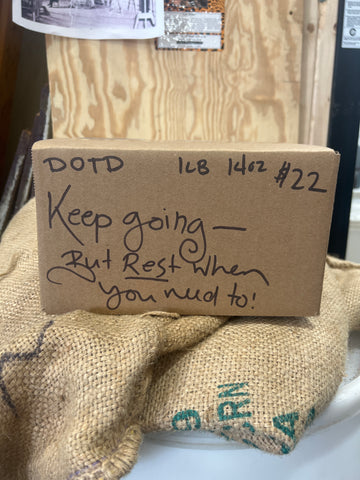 DOTD 1LB 14oz $22
Keep going—
But Rest when
you need to!
RN